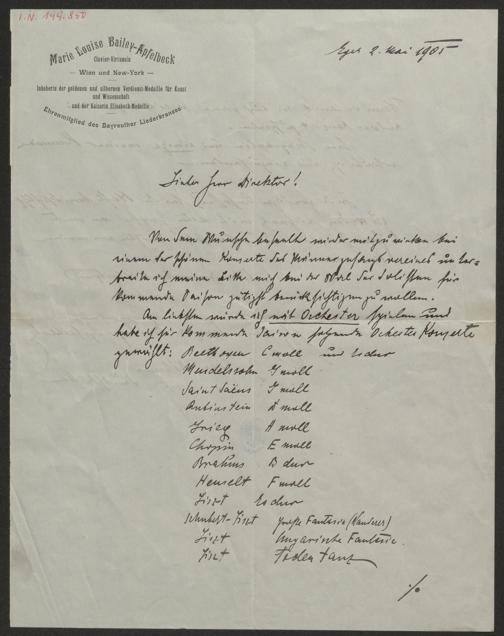 I.N. 149.850
Marie Louise Bailey-Apfelbeck
Clavier-Virtuosin
— Wien und New-York —
Inhaberin der goldenen und silbernen Verdienst-Medaille für Kunst
und Wissenschaft
und der Kaiserin Elisabeth-Medaille
Ehrenmitglied des Bayreuther Liederkranzes
Eger 2. Mai 1905
Lieber Herr Direktor!
Von dem Wunsche beseelt wieder mitzuwirken bei
einem der schönen Konzerte des Männergesangvereines unter=
breite ich meine Bitte mich bei der Wal der Solisten für
kommende Saison gütigst berücksichtigen zu wollen.
Am liebsten würde ich mit Orchester spielen und
habe ich für kommende Saison folgende Orchester Konzerte
gewählt: Beethoven C moll und Es dur
Mendelssohn G moll
Saint Saëns G moll
Rubinstein D moll
Grieg A moll
Chopin E moll
Brahms B dur
Henselt F moll
Liszt Es dur
Schubert-Liszt Große Fantasie (Wanderer)
Liszt Ungarische Fantasie.
Liszt Todentanz
./.